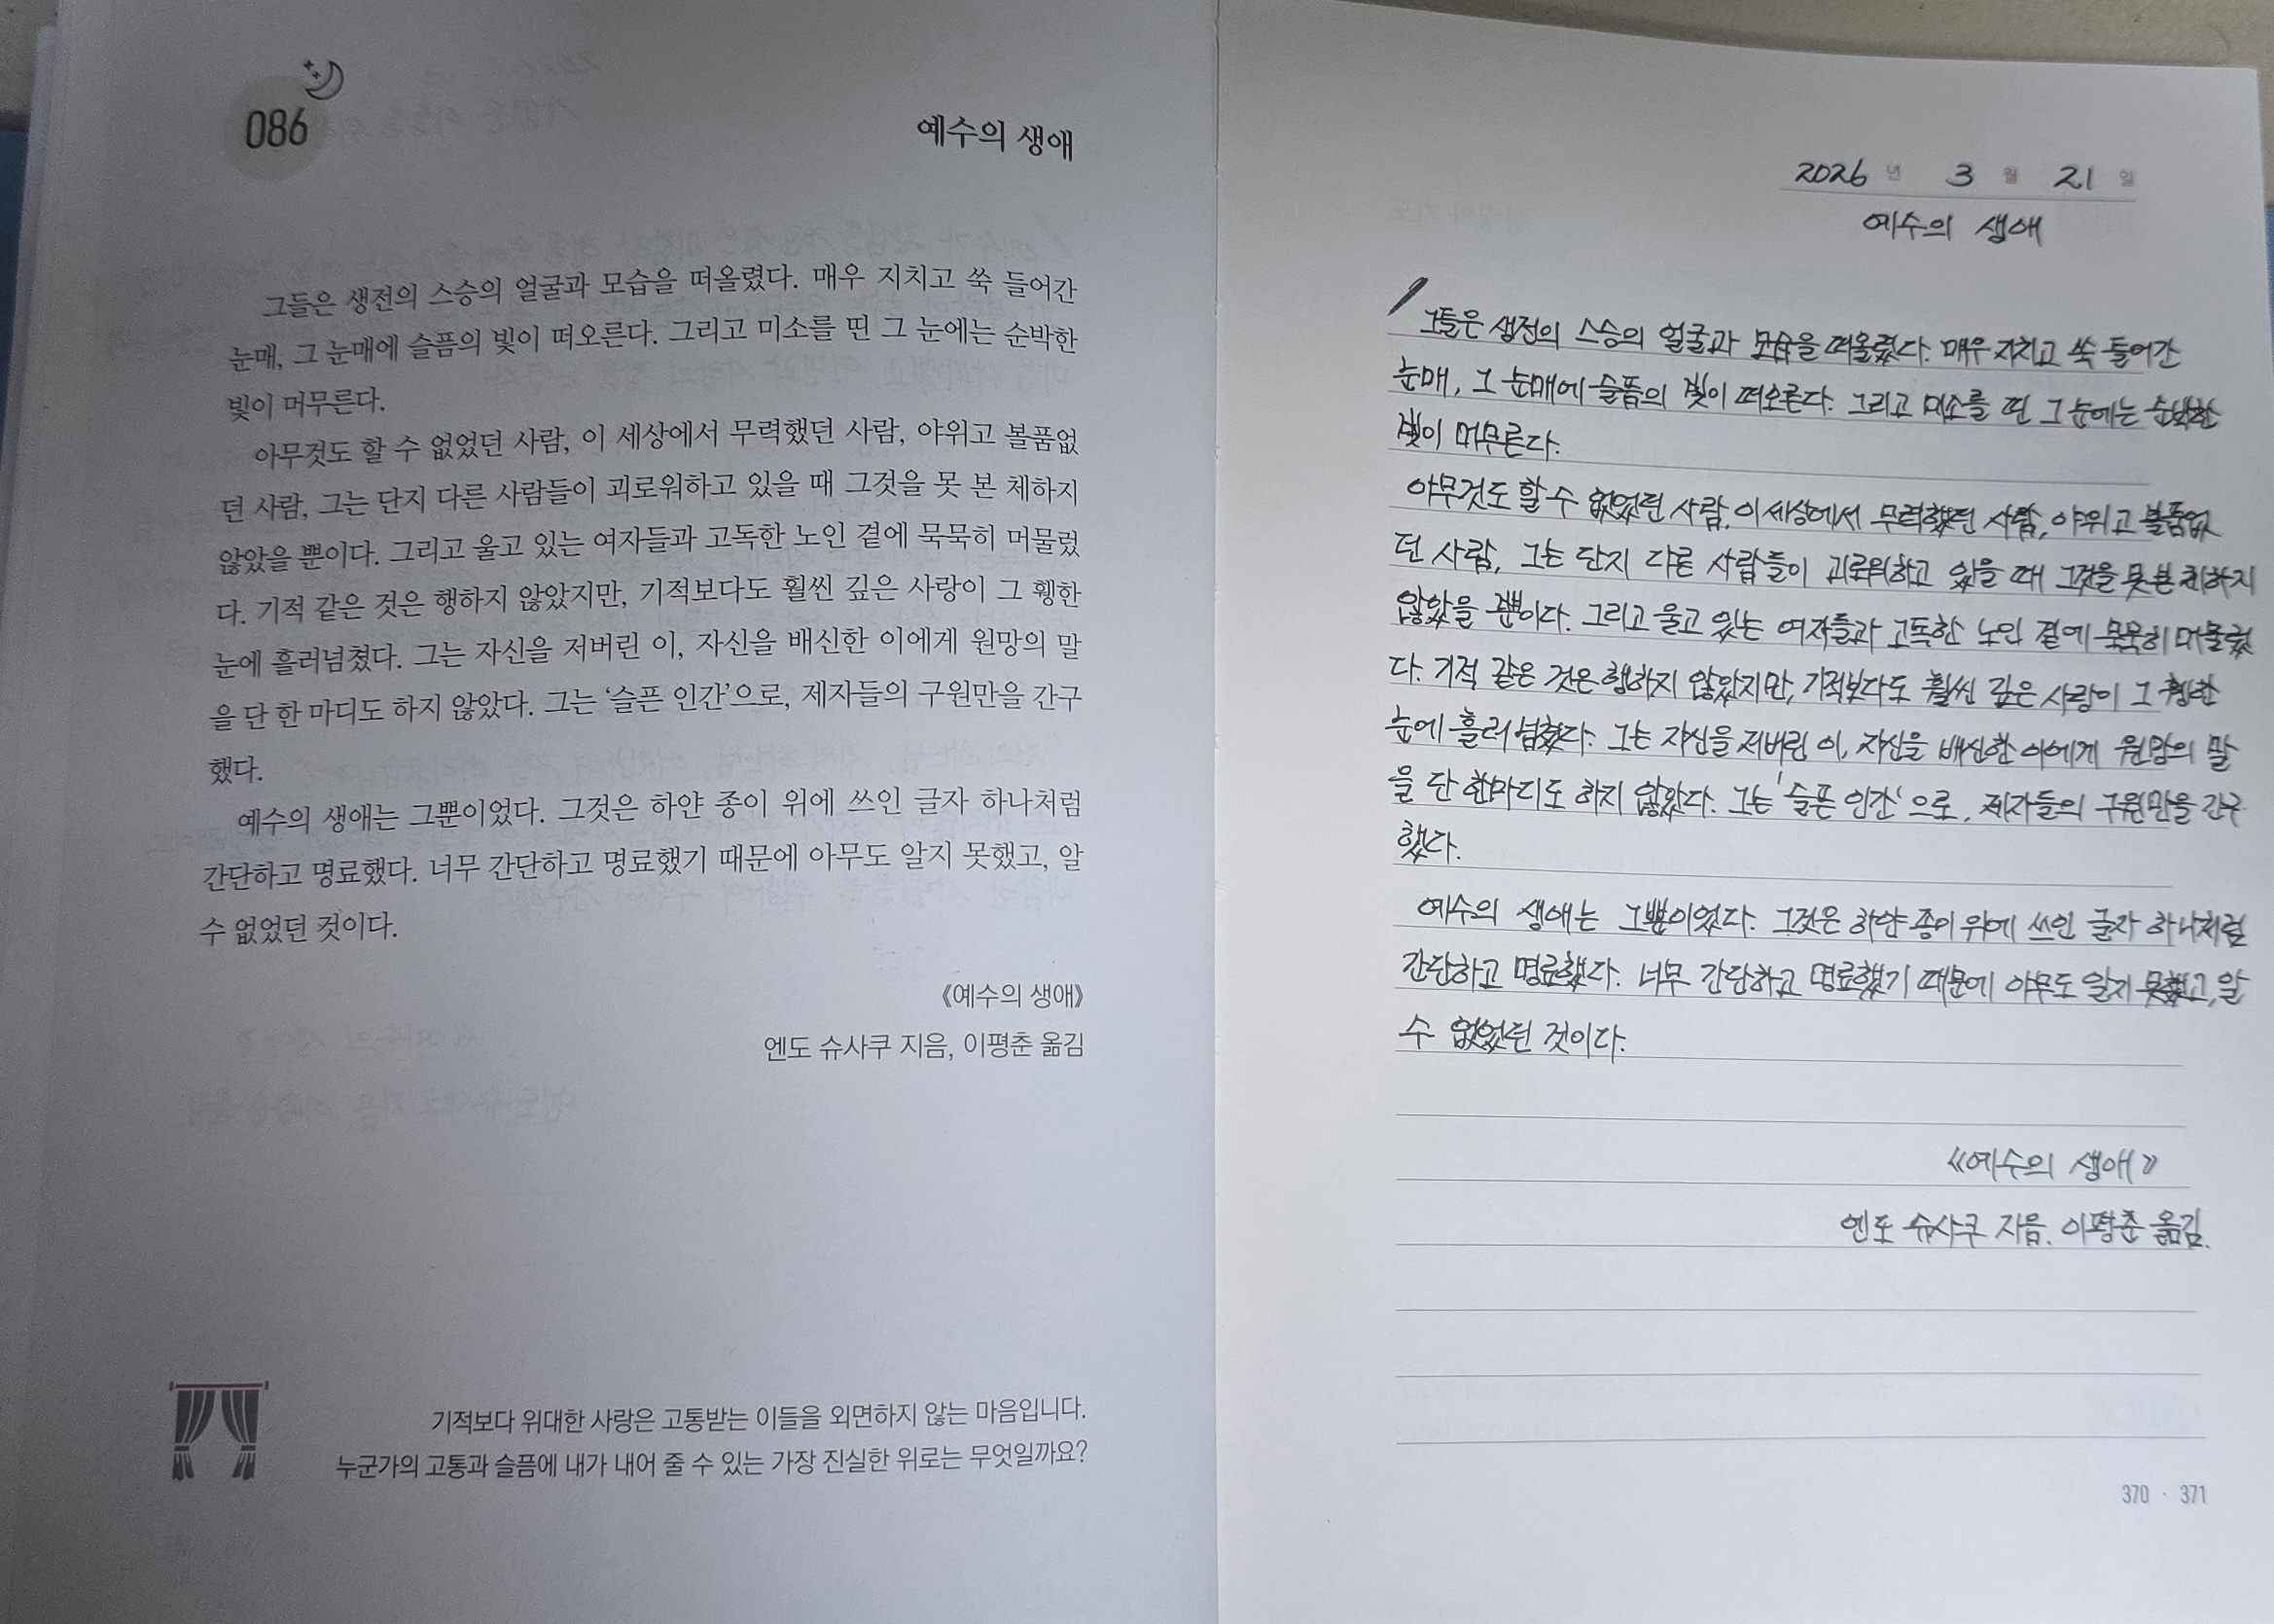 086
예수의 생애
그들은 생전의 스승의 얼굴과 모습을 떠올렸다. 매우 지치고 쑥 들어간
눈매, 그 눈매에 슬픔의 빛이 떠오른다. 그리고 미소를 띤 그 눈에는 순박한
빛이 머무른다.
아무것도 할 수 없었던 사람, 이 세상에서 무력했던 사람, 야위고 볼품없
던 사람, 그는 단지 다른 사람들이 괴로워하고 있을 때 그것을 못 본 체하지
않았을 뿐이다. 그리고 울고 있는 여자들과 고독한 노인 곁에 묵묵히 머물렀
다. 기적 같은 것은 행하지 않았지만, 기적보다도 훨씬 깊은 사랑이 그 휑한
눈에 흘러넘쳤다. 그는 자신을 저버린 이, 자신을 배신한 이에게 원망의 말
을 단 한 마디도 하지 않았다. 그는 ‘슬픈 인간’으로, 제자들의 구원만을 간구
했다.
예수의 생애는 그뿐이었다. 그것은 하얀 종이 위에 쓰인 글자 하나처럼
간단하고 명료했다. 너무 간단하고 명료했기 때문에 아무도 알지 못했고, 알
수 없었던 것이다.
《예수의 생애》
엔도 슈사쿠 지음, 이평춘 옮김
기적보다 위대한 사랑은 고통받는 이들을 외면하지 않는 마음입니다.
누군가의 고통과 슬픔에 내가 내어 줄 수 있는 가장 진실한 위로는 무엇일까요?
2026 년 3 월 21 일
예수의 생애
그들은 생전의 스승의 얼굴과 모습을 떠올렸다. 매우 지치고 쑥 들어간
눈매, 그 눈매에 슬픔의 빛이 떠오른다. 그리고 미소를 띤 그 눈에는 순박한
빛이 머무른다.
아무것도 할 수 없었던 사람, 이 세상에서 무력했던 사람, 야위고 볼품없
던 사람, 그는 단지 다른 사람들이 괴로워하고 있을 때 그것을 못 본 체하지
않았을 뿐이다. 그리고 울고 있는 여자들과 고독한 노인 곁에 묵묵히 머물렀
다. 기적 같은 것은 행하지 않았지만, 기적보다도 훨씬 깊은 사랑이 그 휑한
눈에 흘러 넘쳤다. 그는 자신을 저버린 이, 자신을 배신한 이에게 원망의 말
을 단 한마디도 하지 않았다. 그는 '슬픈 인간'으로, 제자들의 구원만을 간구
했다.
예수의 생애는 그뿐이었다. 그것은 하얀 종이 위에 쓰인 글자 하나처럼
간단하고 명료했다. 너무 간단하고 명료했기 때문에 아무도 알지 못했고, 알
수 없었던 것이다.
《예수의 생애》
엔도 슈사쿠 지음. 이평춘 옮김.
370 · 371